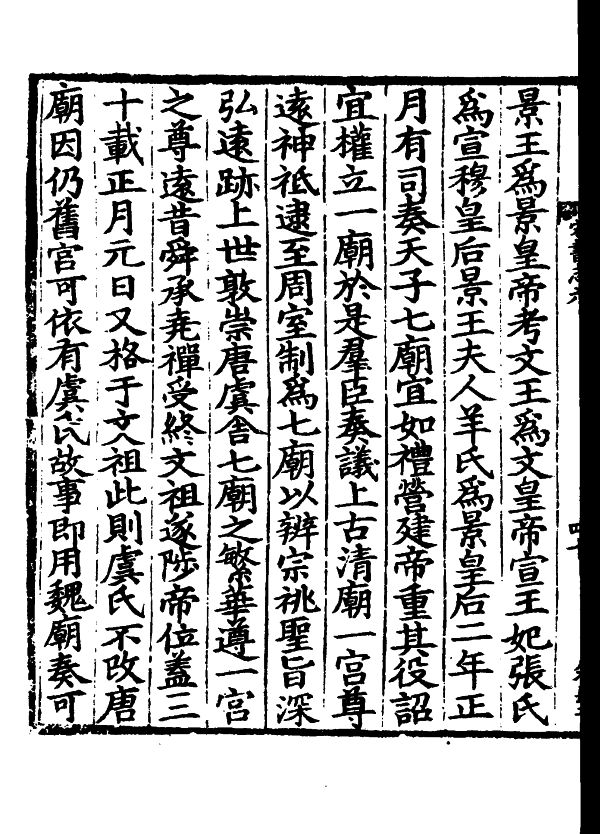 景王爲景皇帝考文王爲文皇帝宣王妃張氏
爲宣穆皇后景王夫人羊氏爲景皇后二年正
月有司奏天子七廟宜如禮營建帝重其役詔
宜權立一廟於是羣臣奏議上古清廟一宮尊
遠神祇逮至周室制爲七廟以辨宗祧聖旨深
弘遠跡上世敦崇唐虞舍七廟之繁華遵一宮
之尊遠昔舜承堯禪受終文祖遂陟帝位蓋三
十載正月元日又格于文祖此則虞氏不改唐
廟因仍舊宮可依有虞氏故事即用魏廟奏可